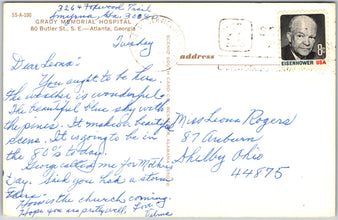 3264 Hopewood Trail
Smyrna, Ga. 30080
55-A-100
GRADY MEMORIAL HOSPITAL
80 Butler St., S.E. — Atlanta, Georgia
Tuesday
address
EISENHOWER USA
8c
Dear Leona:
You ought to be here.
The weather is wonderful.
The beautiful blue sky with
the pines. It makes a beautiful
scene. It is going to be in
the 80's today.
George called me for Mother's
Day. Said you had a storm
there.
How is the church coming.
Hope you are pretty well. Love
Miss Leona Rogers
87 Auburn
Shelby Ohio
44875